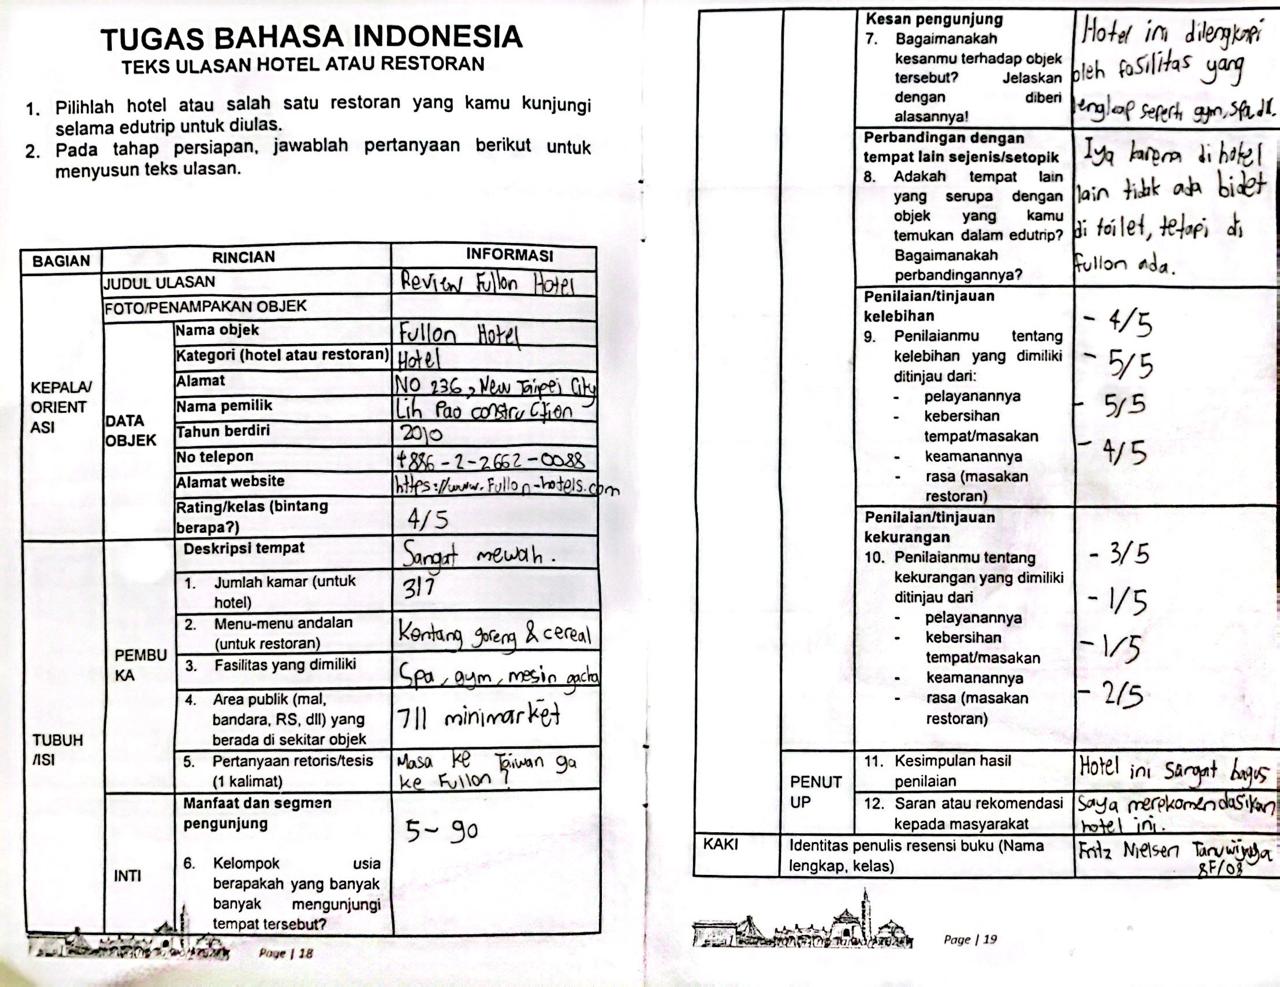 TUGAS BAHASA INDONESIA
TEKS ULASAN HOTEL ATAU RESTORAN
1. Pilihlah hotel atau salah satu restoran yang kamu kunjungi
selama edutrip untuk diulas.
2. Pada tahap persiapan, jawablah pertanyaan berikut untuk
menyusun teks ulasan.
BAGIAN RINCIAN INFORMASI
KEPALA/
ORIENT
ASI
JUDUL ULASAN Review Fullon Hotel
FOTO/PENAMPAKAN OBJEK
DATA
OBJEK
Nama objek Fullon Hotel
Kategori (hotel atau restoran) Hotel
Alamat NO 236, New Taipei City
Nama pemilik Lih Pao construction
Tahun berdiri 2010
No telepon +886-2-2662-0088
Alamat website https://www.Fullon-hotels.com
Rating/kelas (bintang
berapa?)
4/5
TUBUH
/ISI
PEMBU
KA
Deskripsi tempat Sangat mewah.
1. Jumlah kamar (untuk
hotel)
317
2. Menu-menu andalan
(untuk restoran)
Kentang goreng & cereal
3. Fasilitas yang dimiliki Spa, gym, mesin gacha
4. Area publik (mal,
bandara, RS, dll) yang
berada di sekitar objek
711 minimarket
5. Pertanyaan retoris/tesis
(1 kalimat)
Masa ke Taiwan ga
ke Fullon?
INTI
Manfaat dan segmen
pengunjung
6. Kelompok usia
berapakah yang banyak
banyak mengunjungi
tempat tersebut?
5-90
Page | 18
Kesan pengunjung
7. Bagaimanakah
kesanmu terhadap objek
tersebut? Jelaskan
dengan diberi
alasannya!
Hotel ini dilengkapi
oleh fasilitas yang
lengkap seperti gym, spa, dll.
Perbandingan dengan
tempat lain sejenis/setopik
8. Adakah tempat lain
yang serupa dengan
objek yang kamu
temukan dalam edutrip?
Bagaimanakah
perbandingannya?
Iya karena di hotel
lain tidak ada bidet
di toilet, tetapi di
fullon ada.
Penilaian/tinjauan
kelebihan
9. Penilaianmu tentang
kelebihan yang dimiliki
ditinjau dari:
- pelayanannya
- kebersihan
tempat/masakan
- keamanannya
- rasa (masakan
restoran)
- 4/5
- 5/5
- 5/5
- 4/5
Penilaian/tinjauan
kekurangan
10. Penilaianmu tentang
kekurangan yang dimiliki
ditinjau dari
- pelayanannya
- kebersihan
tempat/masakan
- keamanannya
- rasa (masakan
restoran)
- 3/5
- 1/5
- 1/5
- 2/5
PENUT
UP
11. Kesimpulan hasil
penilaian
Hotel ini sangat bagus
12. Saran atau rekomendasi
kepada masyarakat
Saya merekomendasikan
hotel ini.
KAKI
Identitas penulis resensi buku (Nama
lengkap, kelas)
Fritz Nielsen Taruwijaya
8F/08
Page | 19